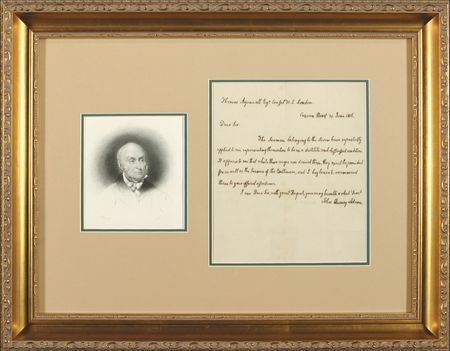 Thomas Aspinwall Esqr Consul U.S. London
Craven Street 14 June 1816
Dear Sir.
The Seamen belonging to the have repeatedly
applied to me, representing themselves to be in a destitute and condition
It appears to me that while their wages are denied them, they ought to be provided
for as well as the Seamen of the and I beg leave to recommend
them to your official attention.
I am Dear Sir, with great Respect, your very humble & obedt Servt
John Quincy Adams